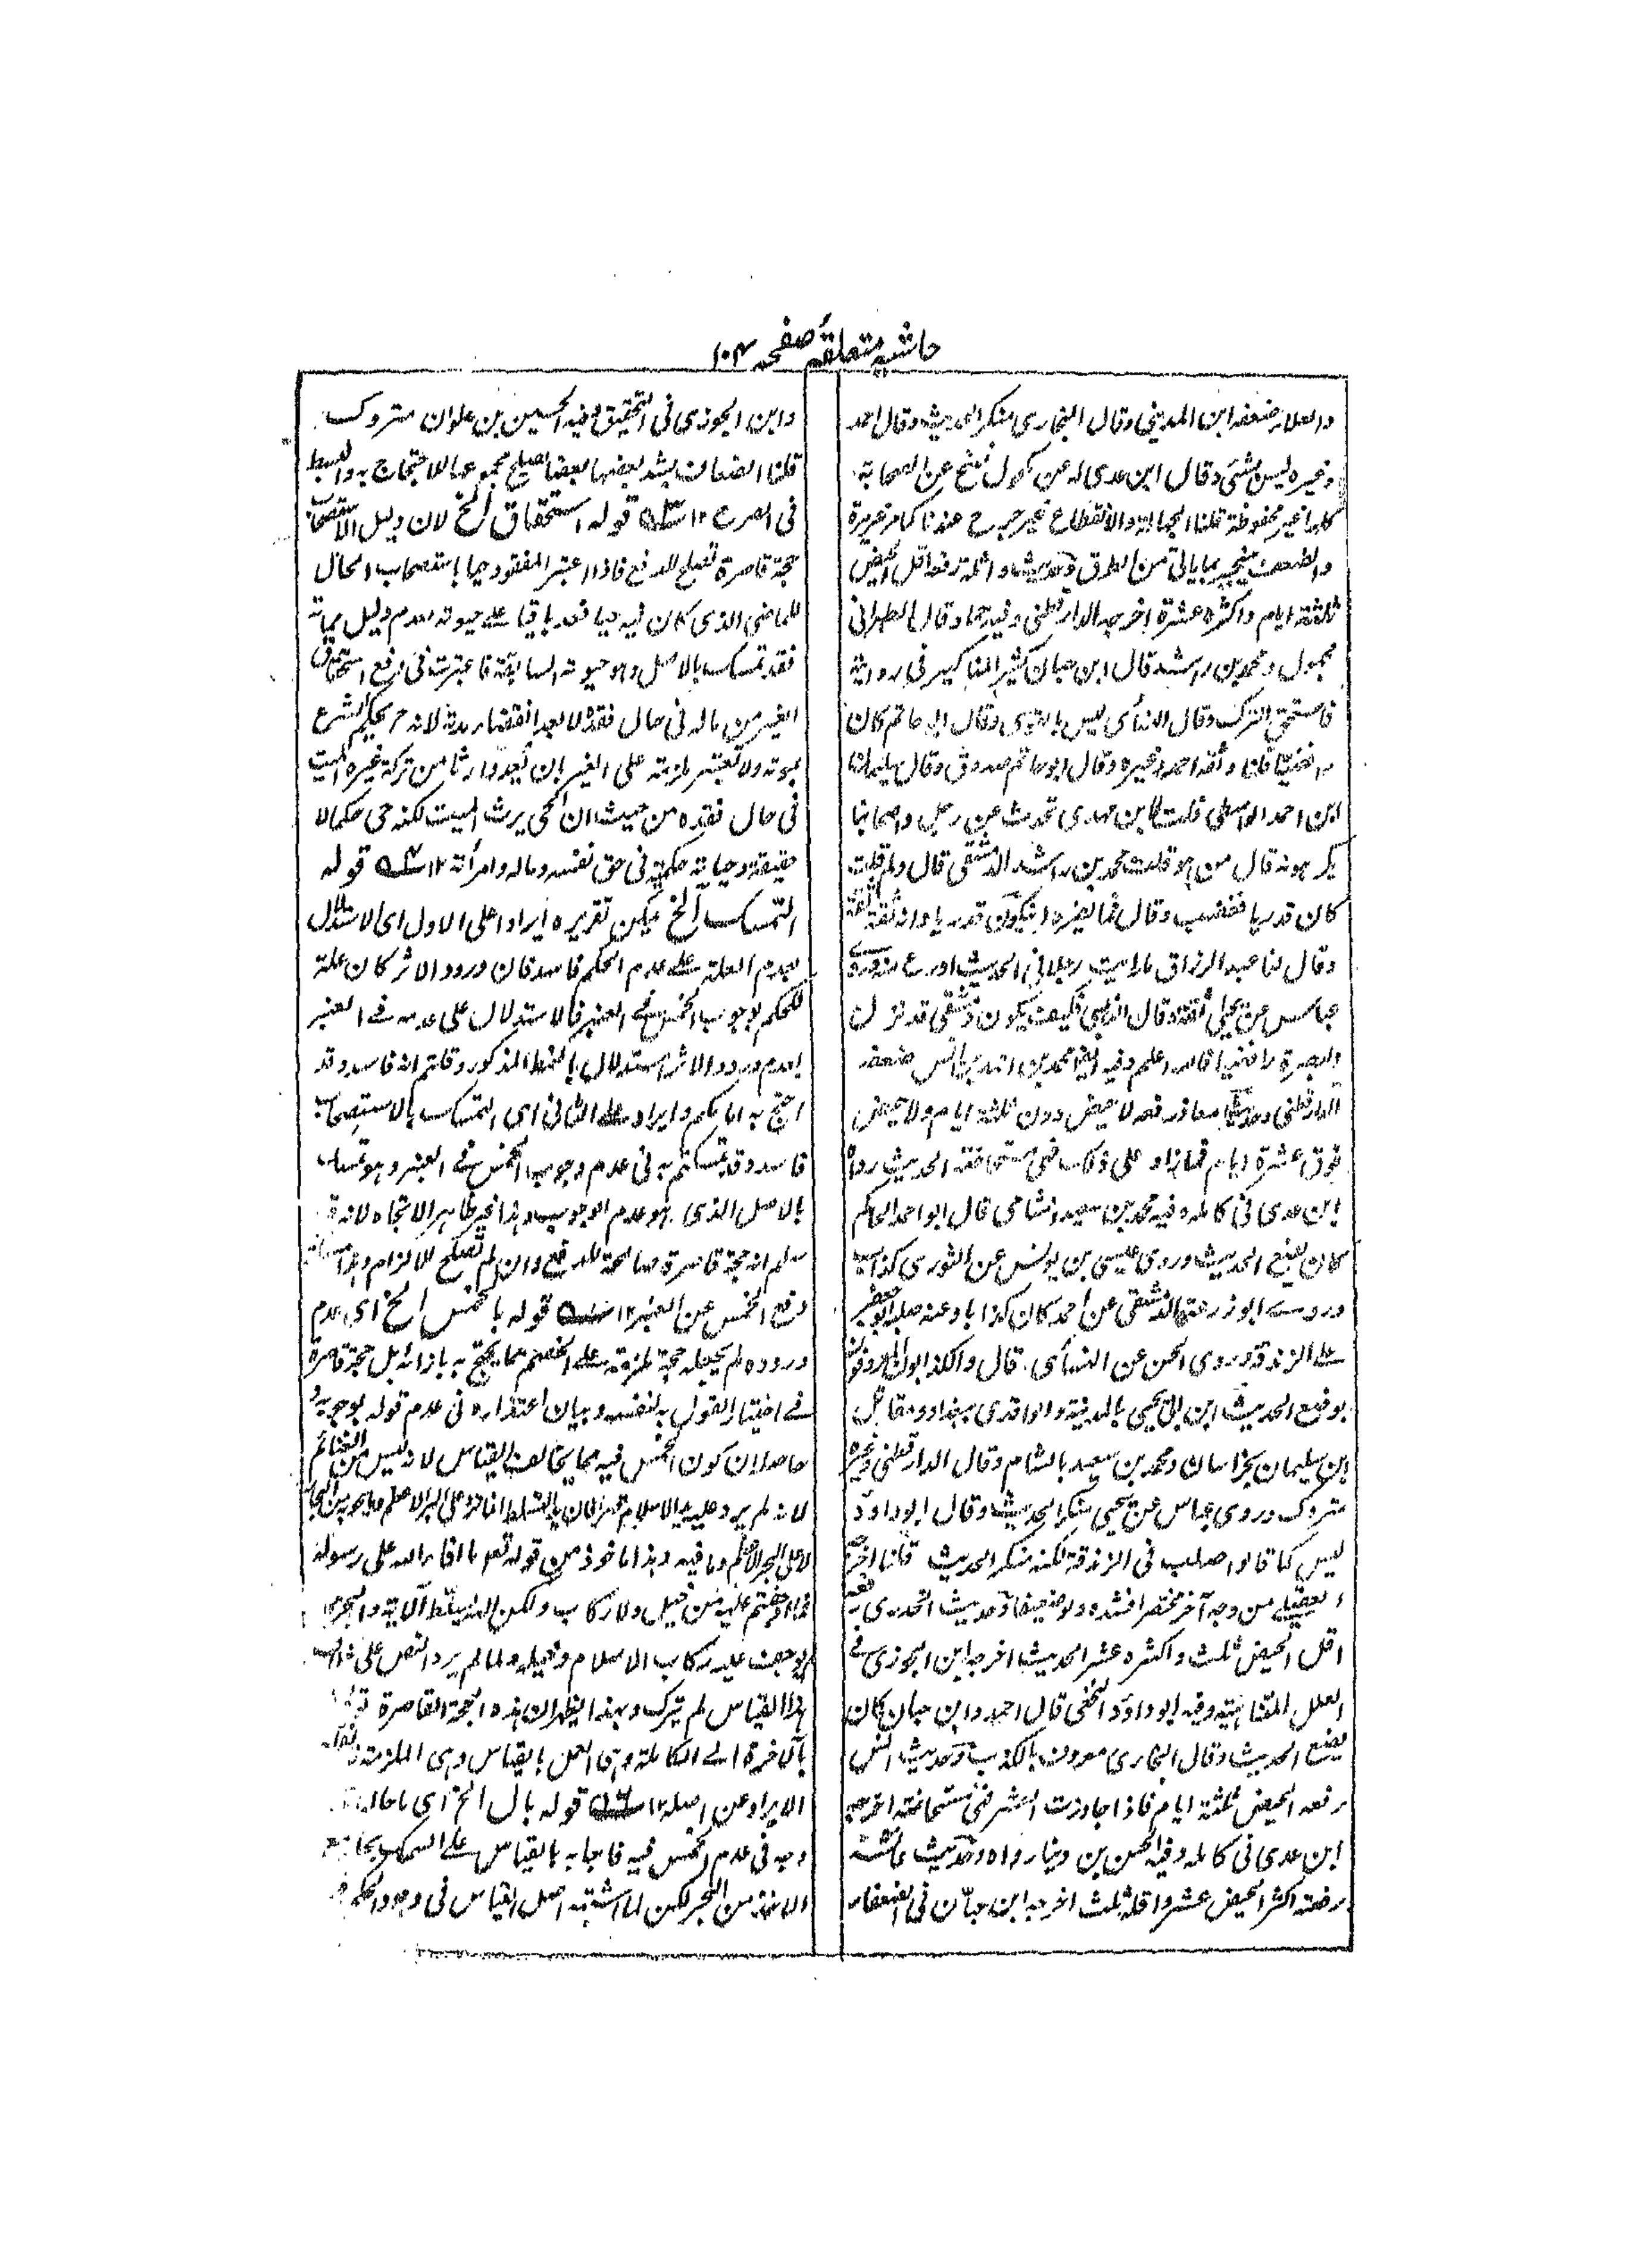 حاشیہ متعلقہ صفحہ ۱۰۴
والعلاء ضعفه ابن المديني وقال البخاري منكر الحديث وقال احمد
وغيره ليس بشئ وقال ابن عدي له عن مكحول نسخ عن الصحابة
كلها غير محفوظة قلنا الجهالة والانقطاع غير جرح عندنا كما مر غير مرة
والضعف ينجبر بما ياتي من الطرق وحديث واثلة رفعه اقل الحيض
ثلثة ايام واكثره عشرة اخرجه الدارقطني وفيه حماد قال الطبراني
مجهول ومحمد بن راشد قال ابن حبان كثير المناكير في روايته
فاستحق الترك وقال النسائي ليس بالقوي وقال ابو حاتم كان
رافضيا قلنا وثقه احمد وغيره وقال ابو حاتم صدوق وقال سليمان
ابن احمد الواسطي قلت لابن مهدي تحدث عن رجل واصحابنا
يكرهونه قال من هو قلت محمد بن راشد الدمشقي قال ولم قلت
كان قدريا فغضب وقال فما يضره ان يكون قدريا وانه ثقة ثقة
وقال لنا عبد الرزاق ما رايت رجلا في الحديث اورع منه وروى
عباس عن يحيى ثقة وقال الذهبي فكيف يكون دمشقي قد نزل
البصرة رافضيا فالله اعلم وفيه ايضا محمد بن احمد بن انس ضعفه
الدارقطني وحديث معاذ رفعه لا حيض دون ثلثة ايام ولا حيض
فوق عشرة ايام فما زاد على ذلك فهي مستحاضة الحديث رواه
ابن عدي في كامله وفيه محمد بن سعيد الشامي قال ابو احمد الحاكم
كان يضع الحديث وروى عيسى بن يونس عن الثوري كذاب
وروى ابو زرعة الدمشقي عن احمد كان كذابا وعنه صلبه ابو جعفر
على الزندقة وروى الحسن عن النسائي قال والكذابون المعروفون
بوضع الحديث ابن ابي يحيى بالمدينة والواقدي ببغداد ومقاتل
ابن سليمان بخراسان ومحمد بن سعيد بالشام وقال الدارقطني وغيره
متروك وروى عباس عن يحيى منكر الحديث وقال ابو داود
ليس كما قالوا صلب في الزندقة لكنه منكر الحديث قلنا اخرجه
العقيلي من وجه آخر مختصرا فشده ولو ضعيفا وحديث الخدري رفعه
اقل الحيض ثلث واكثره عشر الحديث اخرجه ابن الجوزي في
العلل المتناهية وفيه ابو داود النخعي قال احمد وابن حبان كان
يضع الحديث وقال البخاري معروف بالكذب وحديث انس
رفعه الحيض ثلثة ايام فاذا جاوزت العشر فهي مستحاضة اخرجه
ابن عدي في كامله وفيه الحسن بن دينار رواه وحديث عائشة
رفعته اكثر الحيض عشر واقله ثلث اخرجه ابن حبان في الضعفاء
وابن الجوزي في التحقيق وفيه الحسين بن علوان متروك
قلنا الضعاف يشد بعضها بعضا فيصلح مجموعها للاحتجاج به والبسط
في الصرح ۱۲ قوله استحقاق الخ لان دليل الاستصحاب
حجة قاصرة تصلح للدفع فاذا اعتبر المفقود حيا باستصحاب الحال
للماضي الذي كان فيه حيا فعد باقيا على حيوته لعدم دليل مماته
فقد تمسك بالاصل وهو حيوته السابقة فاعتبرت في دفع استحقاق
الغير من ماله في حال فقده لا بعد انقضاء مدته لانه ح يحكم الشرع
بموته ولا تعتبر ملزمة على الغير بان يعد وارثا من تركة غيره الميت
في حال فقده من حيث ان الحي يرث الميت لكنه حي حكما لا
حقيقة وحياته حكمية في حق نفسه وماله وامرأته ۱۲ قوله
التمسك الخ يمكن تقريره ايرادا على الاول اي الاستدلال
بعدم العلة على عدم الحكم فاسد فان ورود الاثر كان علة
للحكم بوجوب الخمس في العنبر فالاستدلال على عدمه في العنبر
بعدم ورود الاثر استدلال بالنمط المذكور وقلتم انه فاسد وقد
احتج به امامكم وايراد على الثاني اي التمسك بالاستصحاب
فاسد وقد تمسكتم به في عدم وجوب الخمس في العنبر وهو تمسك
بالاصل الذي هو عدم الوجوب وهذا غير ظاهر الاتجاه لانه قد
سلم انه حجة قاصرة صالحة للدفع وان لم تصلح للالزام وهذا
دفع الخمس عن العنبر ۱۲ قوله بالخمس الخ اي عدم
وروده لم يجعله حجة ملزمة على الخصم مما يحتج به بازائه بل حجة قاصرة
في اختيار القول به لنفسه وبيان اعتذاره في عدم قوله بوجوبه
حاصله ان كون الخمس فيه مما يخالف القياس لانه ليس من الغنائم
لانه لم يرد عليه يد الاسلام قهرا فان يد التسلط انما هو على البر
لا على البحر الاعظم وما فيه وهذا ماخوذ من قوله تعالى ما افاء الله على رسوله
فما اوجفتم عليه من خيل ولا ركاب ولكن الله يسلط الآية والبحر مما
لم يوجف عليه ركاب الاسلام وخيله ولما لم يرد النص على
هذا القياس لم يترك وبهذا يظهر ان هذه الحجة القاصرة
بالآخرة الى الكاملة وهي العمل بالقياس وهي الملزمة
الايراد عن اصله ۱۲ قوله بال الخ اي ما حاله
وجه في عدم الخمس فيه فاجابه بالقياس على السمك بجامع
الاخذ من البحر لكن لما اشتبه اصل القياس في وجود الحكم